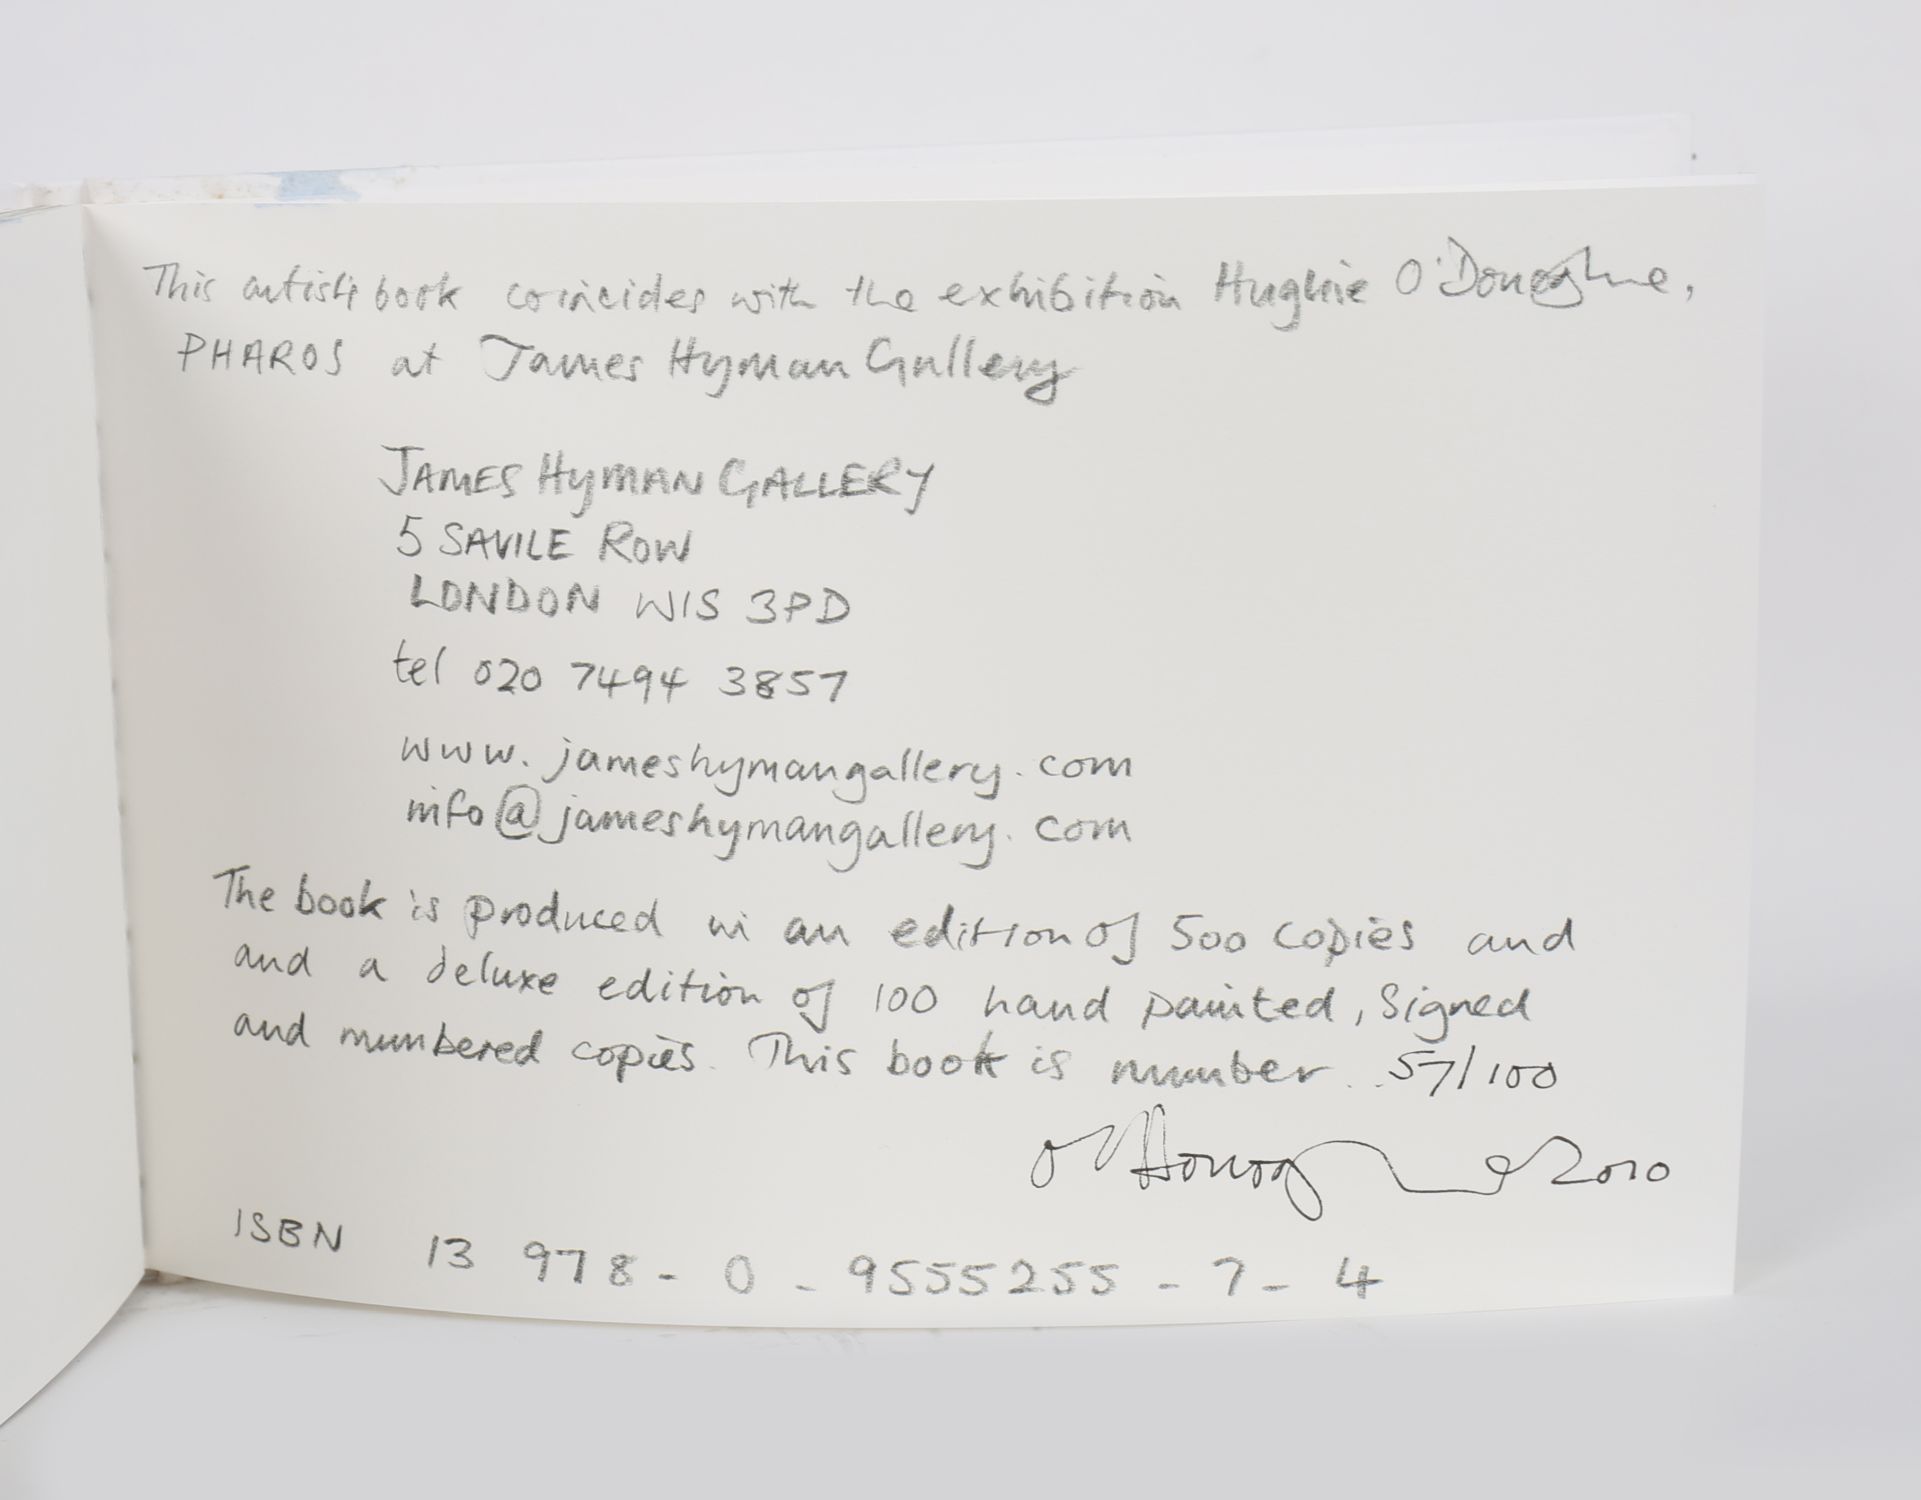 This artists book coincides with the exhibition Hughie O'Donoghue,
PHAROS at James Hyman Gallery
JAMES HYMAN GALLERY
5 SAVILE ROW
LONDON W1S 3PD
tel 020 7494 3857
www.jameshymangallery.com
info@jameshymangallery.com
The book is produced in an edition of 500 copies and
and a deluxe edition of 100 hand painted, signed
and numbered copies. This book is number...57/100
O'Donoghue 2010
ISBN 13 978-0-9555255-7-4